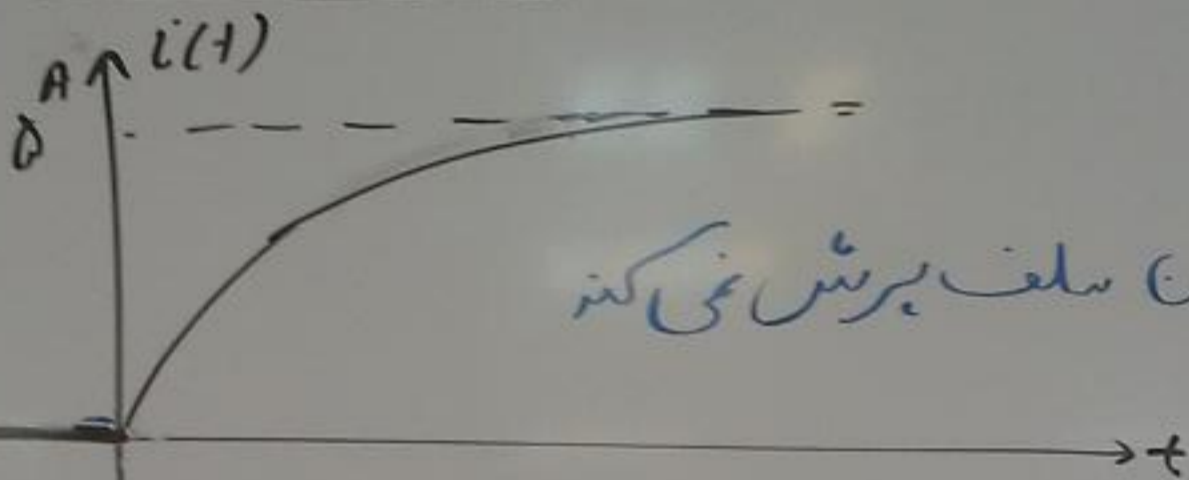 A i(t)
۵
سلف پرش نمی‌کند
t